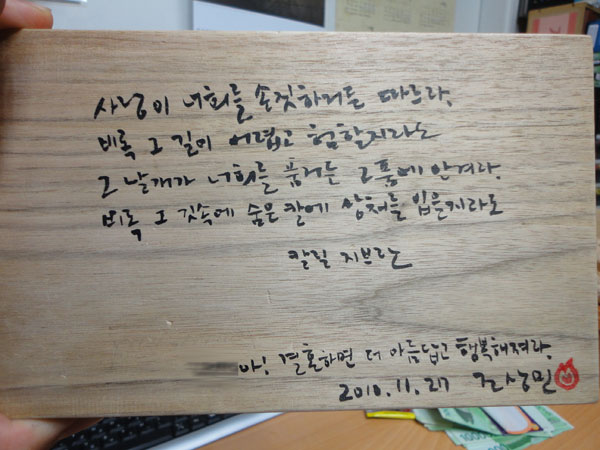 사랑이 너희를 손짓하거든 따르라.
비록 그 길이 어렵고 험할지라도
그 날개가 너희를 품거든 그 품에 안겨라.
비록 그 깃속에 숨은 칼에 상처를 입을지라도
칼릴 지브란
아! 결혼하면 더 아름답고 행복해져라.
2010.11.27 상민